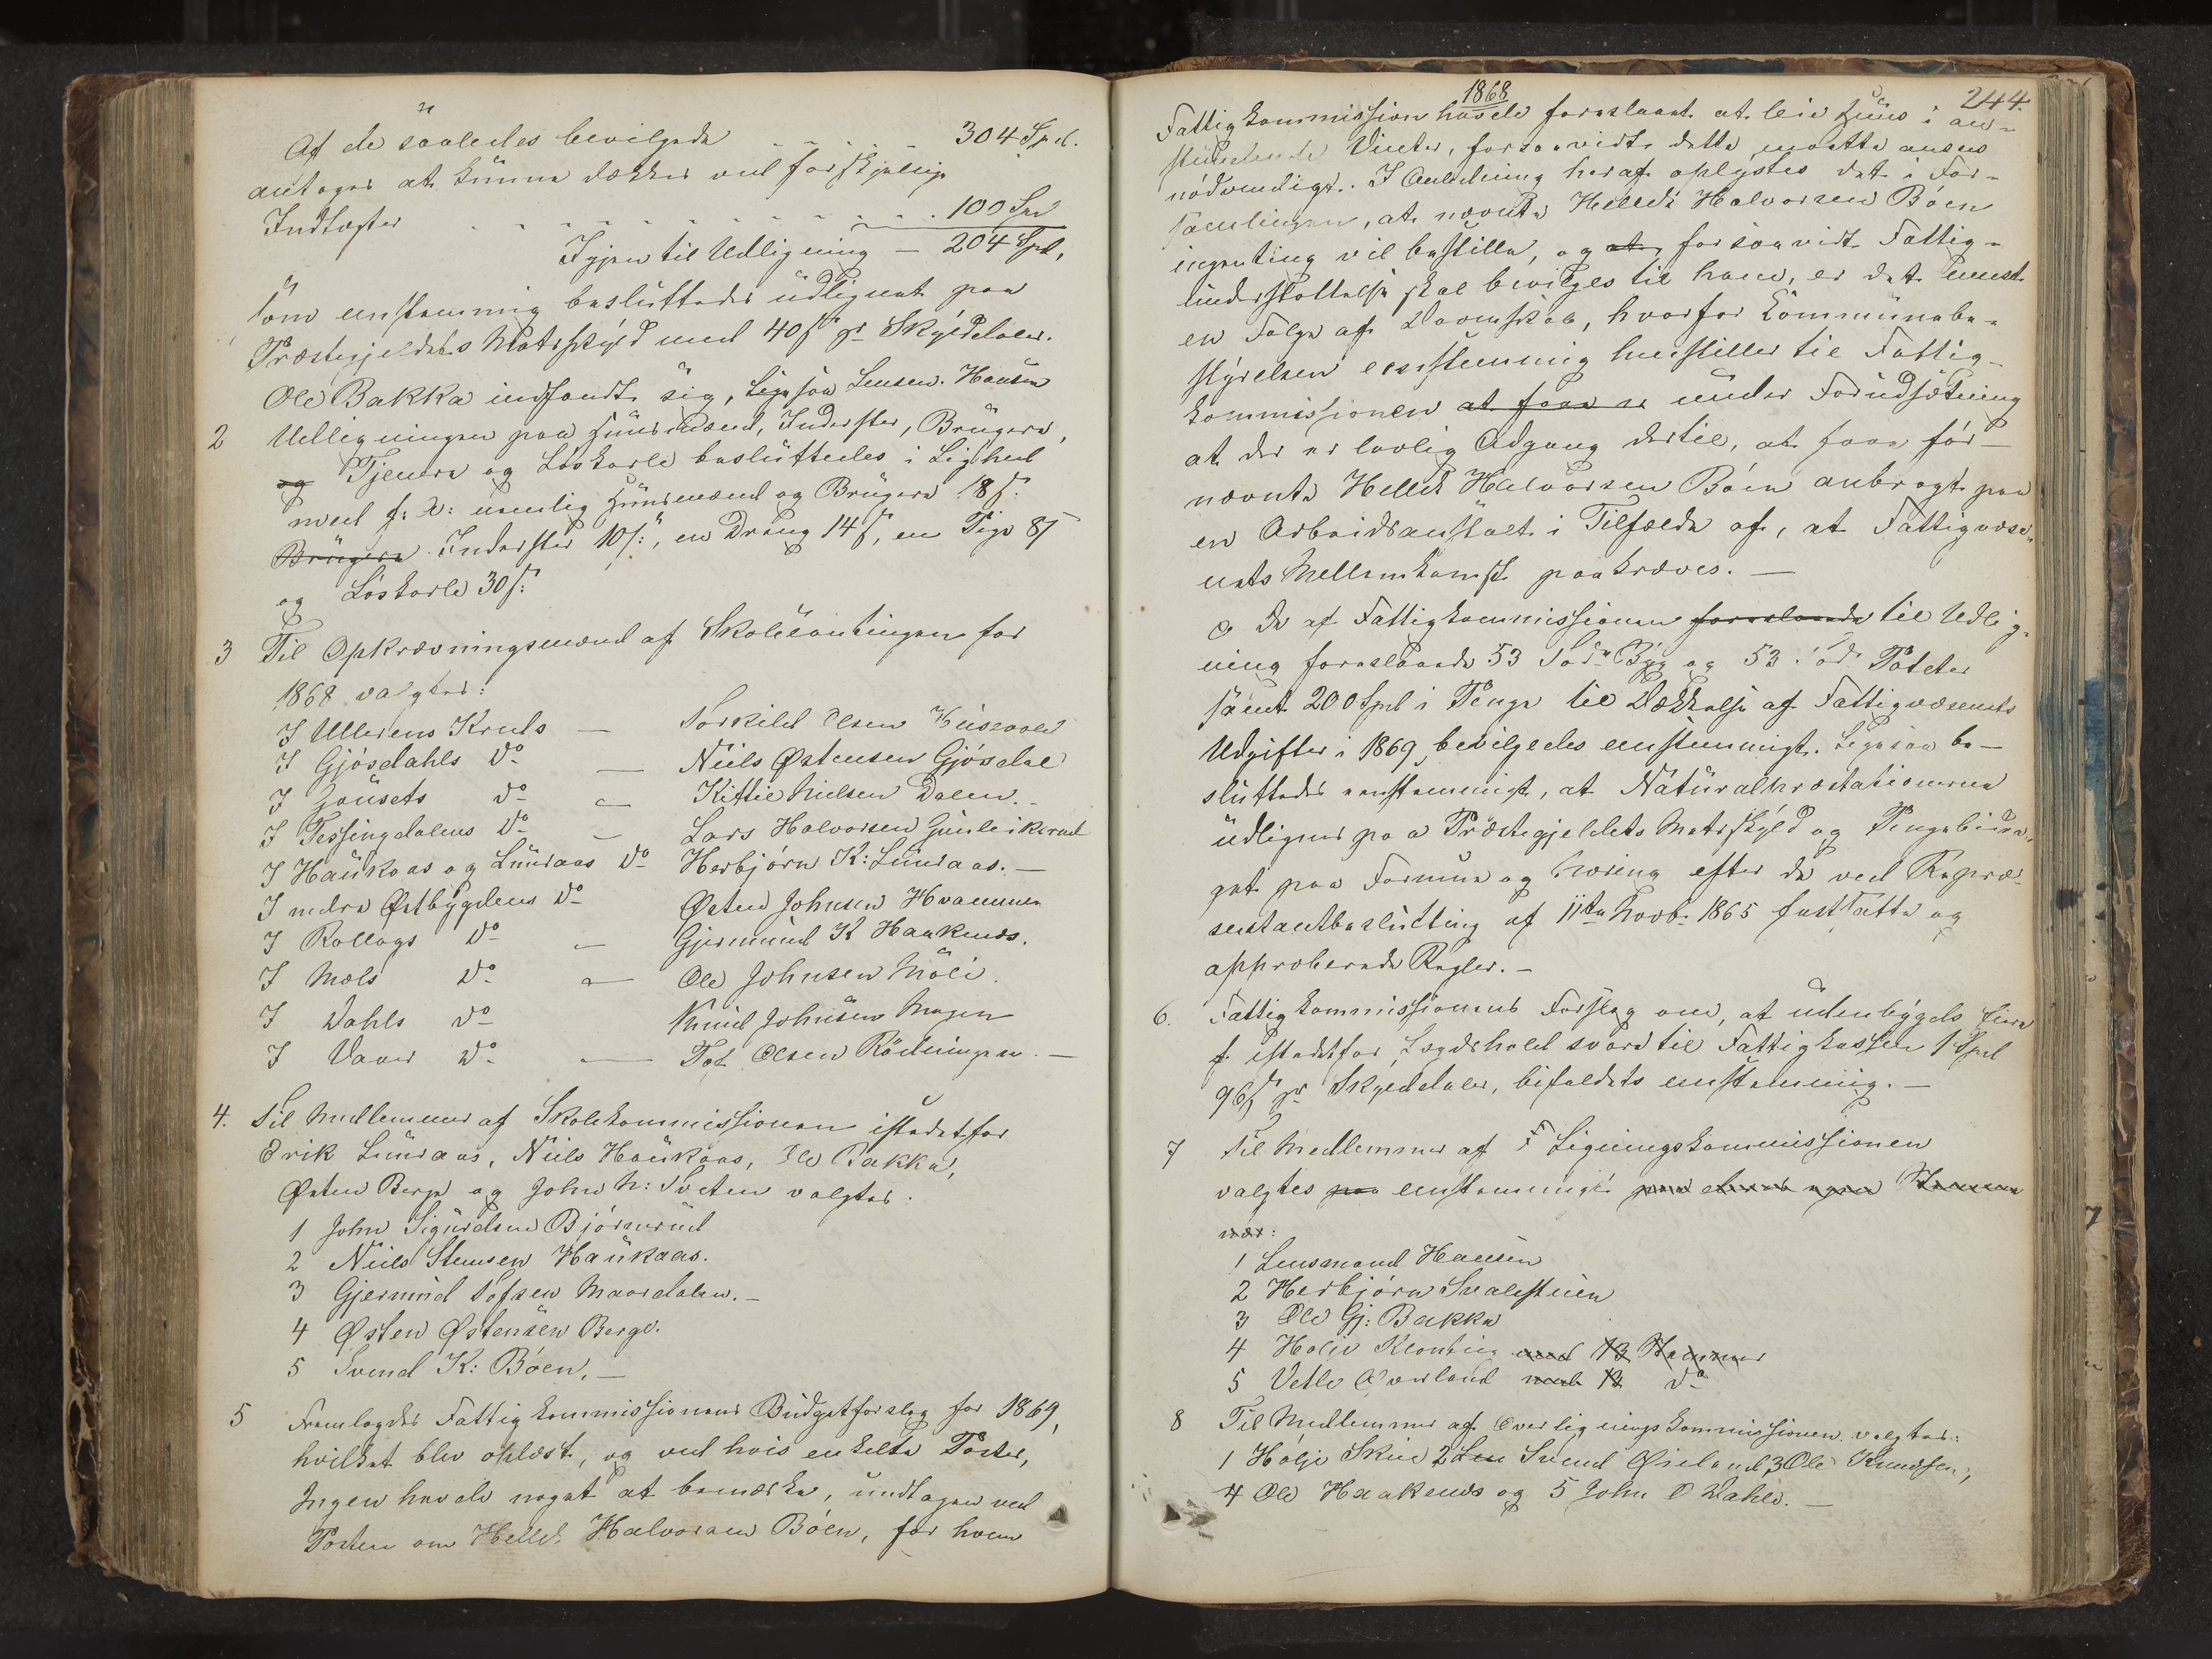 Af de saaledes bevilgede 304 Spd.
antages at kunne dækkes ved forskjellige
Indtægter 100 Spd
Igjen til Udligning — 204 Spd,
som enstemmig besluttedes udlignet paa
Præstegjeldets Matrskyld med 40 s pr Skylddaler.
Ole Bakka indfandt sig, ligesaa Lensm. Hansen
2 Udligningen paa Husmænd, Inderster, Brugere,
og Tjenere og Løskarle besluttedes i Lighed
med f: A: nemlig Husmænd og Brugere 18 s:
Brugere Inderster 10 s:, en Dreng 14 s, en Pige 8 s
og Løskarle 30 s:
3 Til Opkrævningsmænd af Skolecontingen for
1868 valgtes:
I Ullerens Kreds — Torkild Olsen Husevold
I Gjøsdahls Do — Niels Østensen Gjøsdal
I Gausets do — Kittil Nielsen Dalen.
I Tessingdalens Do — Lars Halvorsen Gunleiksrud
I Haukaas og Lundaas Do Herbjørn K: Lundaas. —
I nedre Østbygdens Do Østen Johnsen Hvammen
I Rollags Do — Gjermund K Haakenes.
I Mæls Do — Ole Johnsen Møli.
I Dahls Do Knud Johnsen Mogen
I Vaaer Do — Tof Olsen Rödningen. —
4. Til Medlemmer af Skolekommissionen istedetfor
Erik Lundaas, Niels Haukaas, Ole Bakka,
Østen Berge og John N: Sveten valgtes.
1 John Sigurdsen Bjørnerud
2 Niels Stensen Haukaas.
3 Gjermund Tofsen Maardalen. —
4 Østen Østensen Berge.
5 Svend K: Bøen. —
5 Fremlagdes Fattigkommissionens Budgetforslag for 1869,
hvilket blev oplæst, og ved hvis enkelte Poster,
Ingen havde noget at bemærke, undtagen ved
Posten om Hellek Halvorsen Bøen, for hvem
1868
244.
Fattigkommission havde foreslaaet at leie Huus i an-
stundende Vinter, forsaavidt dette maatte ansees
nødvendigt. I Anledning heraf oplystes det i For-
samlingen, at nævnte Hellek Halvorsen Bøen
ingenting vil bestille, og at, forsaavidt Fattig-
understøttelse skal bevilges til ham, er det mest
en Følge af Dovenskab, hvorfor Kommunebe-
styrelsen eenstemmig henstiller til Fattig-
kommissionen at faae under Forudsætning
at der er lovlig Adgang dertil, at faae før-
nævnte Hellek Halvorsen Bøen anbragt paa
en Arbeidsanstalt i Tilfælde af, at Fattigvæse-
nets Mellemkomst paakræves. —
De af Fattigkommissionen foreslaaede til Udlig-
ning foreslaaede 53 Tdr Byg og 53 Tdr Poteter
samt 200 Spd i Penge til Dækkelse af Fattigvæsenets
Udgifter i 1869, bevilgedes eenstemmigt. Ligesaa be-
sluttedes eenstemmigt, at Naturalpræstationerne
udlignes paa Præstegjeldets Matrskyld og Pengebidra-
get paa Formue og Næring efter de ved Repræ-
sentantbeslutting af 11te Novbr 1865 fastsatte og
approberede Regler. —
6. Fattigkommissionens Forslag om, at udenbygds Eiere
f istedetfor Lægdshold svare til Fattigkassen 1 Spd
96 s pr Skylddaler, bifaldtes eenstemmig. —
7 Til Medlemmer af Ligningskommissionen
valgtes paa eenstemmigt
1 Lensmand Hansen
2 Herbjørn Svalestuen
3 Ole Gj: Bakka
4 Holje Klonteig med 13 Stemmer
5 Vetle Overland med 13 do
8 Til Medlemmer af Overligningskommissionen valgtes:
1 Holje Skin 2 Len Svend Øieland, 3 Ole Knudsen,
4 Ole Haakenes og 5 John O Dahle. —